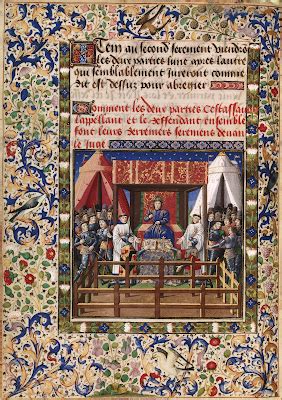 Item au second serement viendrōt
les deux parties lune apres lautre
qui semblablement jureront comme
dit est dessus pour abregier
Comment les deux parties Cestassauoir
lappellant et le deffendant ensemble
font leurs derreniers seremens deuant
le Juge